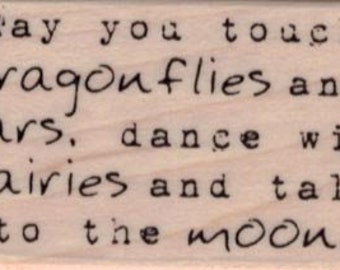 ay you touc
ragonflies an
ars, dance wi
airies and tal
to the moon